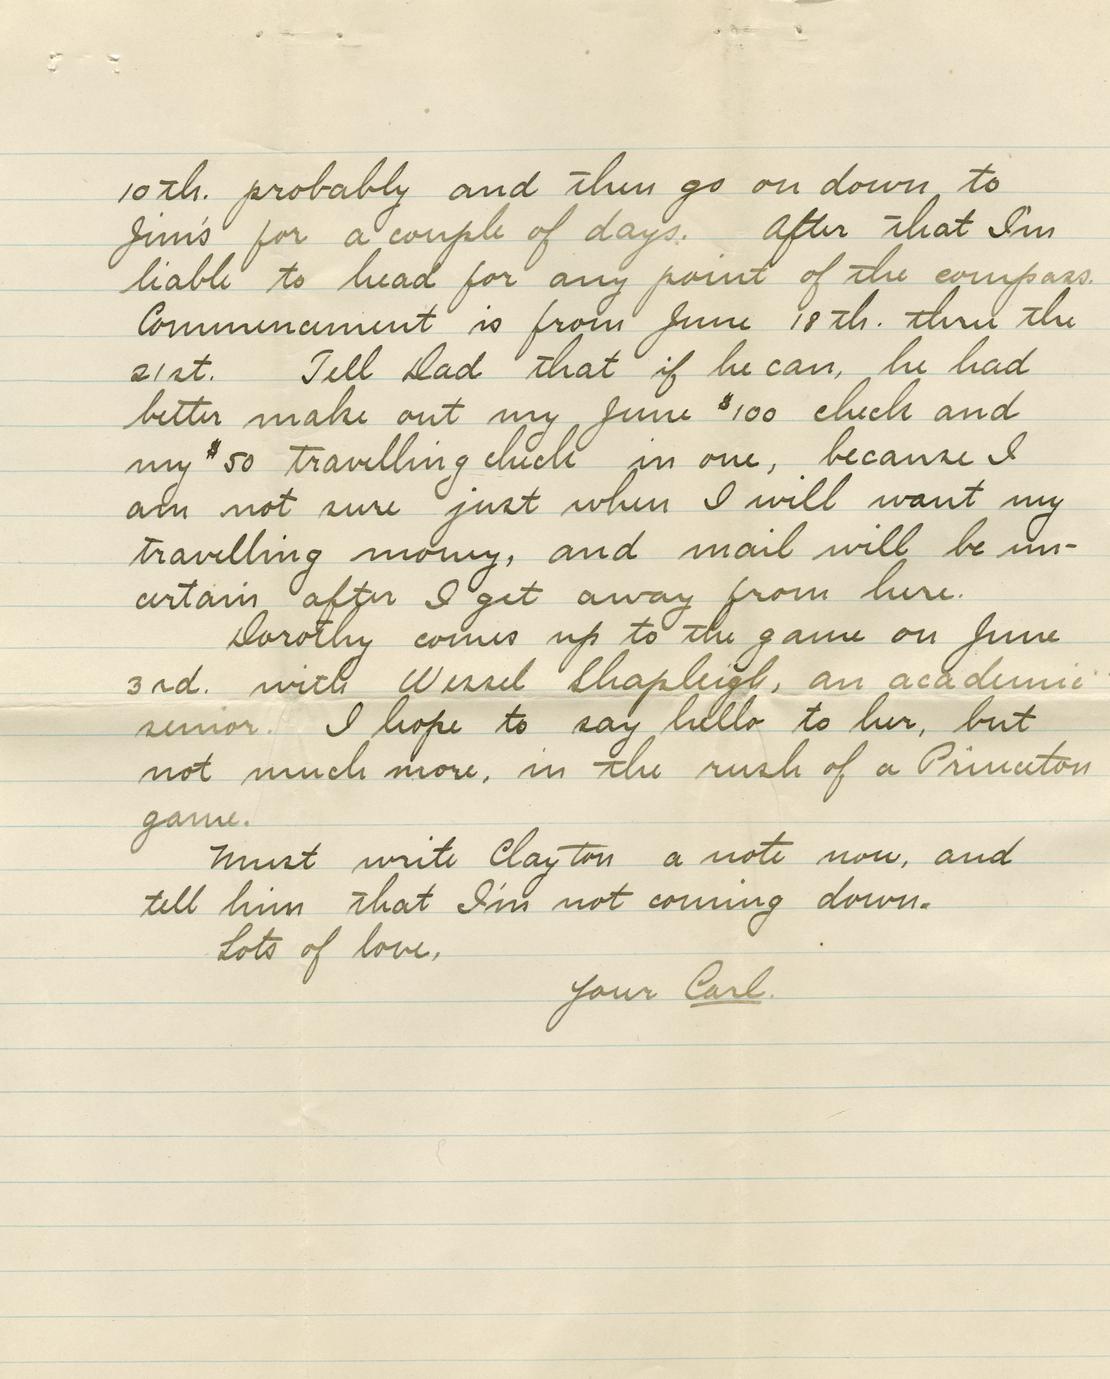 10th. probably and then go on down to
Jim's for a couple of days. After that I'm
liable to head for any point of the compass.
Commencement is from June 18th. thru the
21st. Tell Dad that if he can, he had
better make out my June $100 check and
my $50 travelling check in one, because I
am not sure just when I will want my
travelling money, and mail will be un-
certain after I get away from here.
Dorothy comes up to the game on June
3rd. with Wessel Shapleigh, an academic
senior. I hope to say hello to her, but
not much more, in the rush of a Princeton
game.
Must write Clayton a note now, and
tell him that I'm not coming down.
Lots of love,
Your Carl.